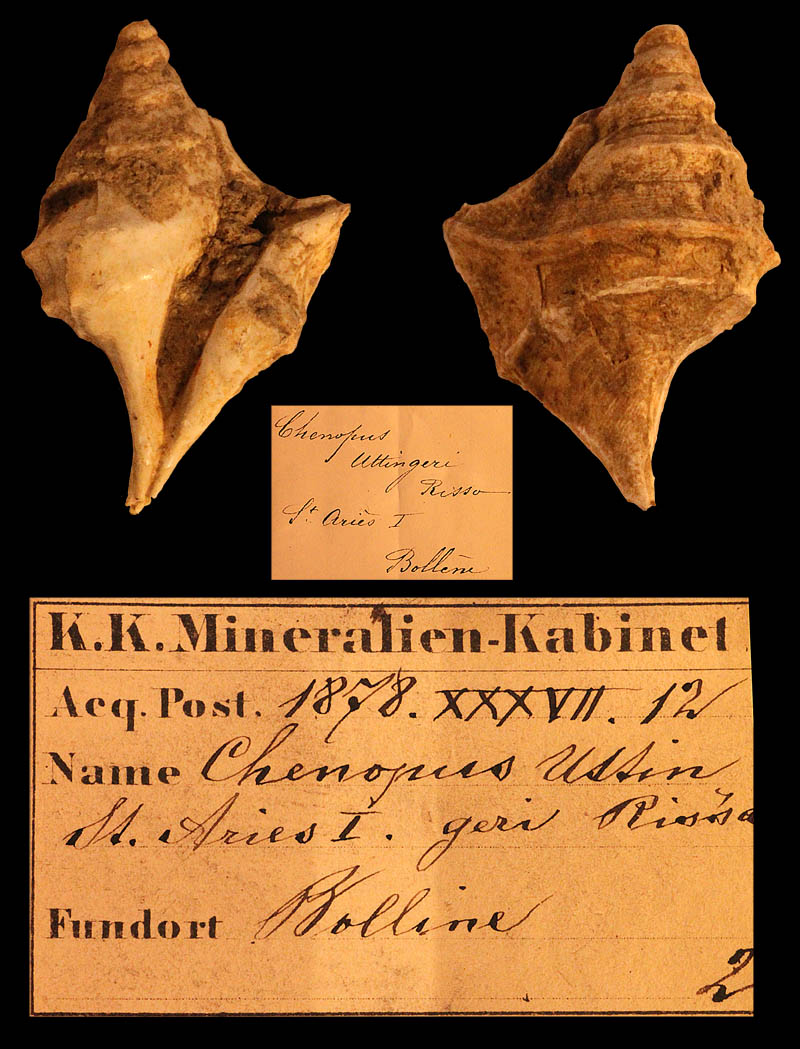 Chenopus
Uttingeri
Risso
St Ariès I
Bollène
K.K. Mineralien-Kabinet.
Acq. Post. 1878. XXXVII. 12
Name Chenopus Uttin
St. Aries I. geri Risso
Fundort Bolline
2